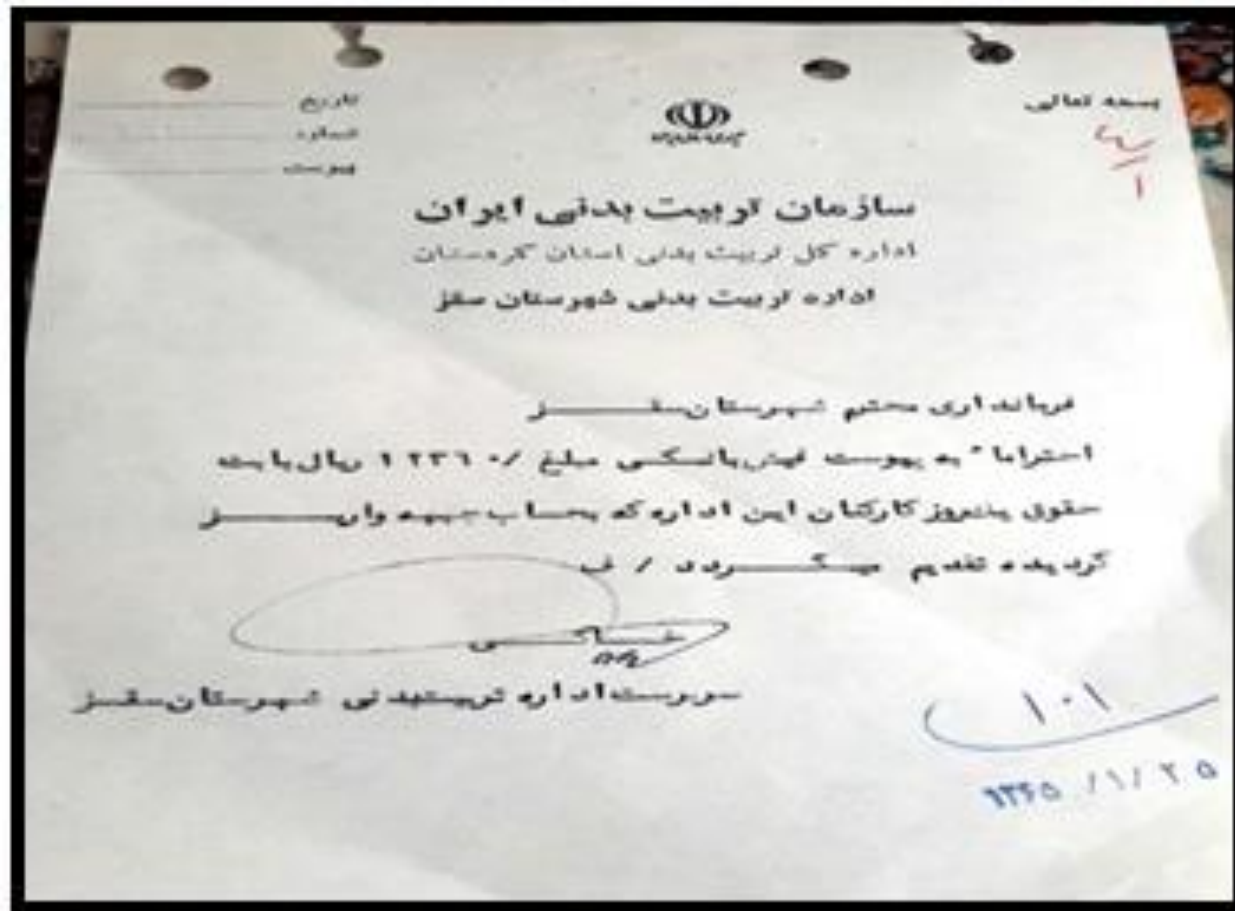 بسمه تعالی
تاریخ
شماره
پیوست
سازمان تربیت بدنی ایران
اداره کل تربیت بدنی استان کردستان
اداره تربیت بدنی شهرستان سقز
فرمانداری محترم شهرستان سقـــــز
احتراما" به پیوست فیش بانکی مبلغ /۱۲۳۶۰ ریال بابت
حقوق یکروز کارکنان این اداره که بحساب جبهه واریـــــز
گردیده تقدیم میگـــــردد / ف
سرپرست اداره تربیت بدنی شهرستان سقـــز
۱۰۱
۱۳۶۵ /۱/ ۲۵